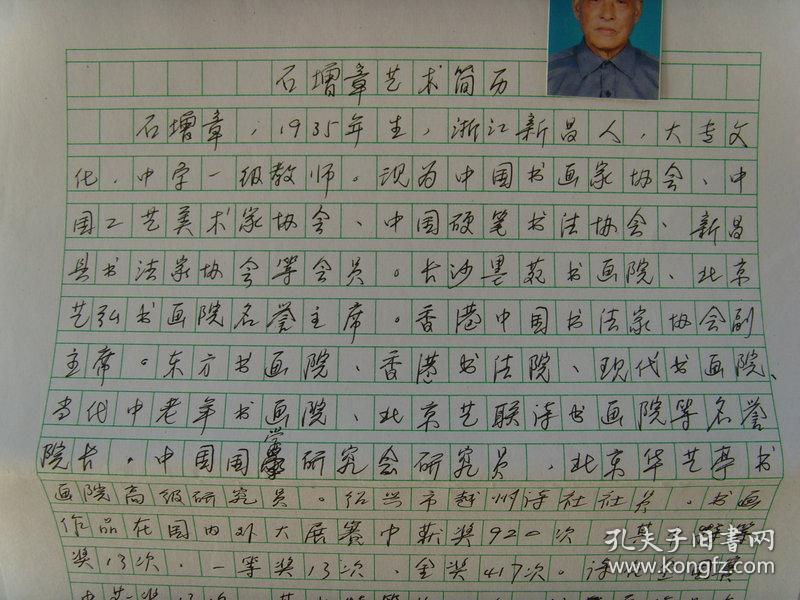 石增章艺术简历
石增章，1935年生，浙江新昌人，大专文
化，中学一级教师。现为中国书画家协会、中
国工艺美术家协会、中国硬笔书法协会、新昌
县书法家协会等会员。长沙墨苑书画院、北京
艺弘书画院名誉主席。香港中国书法家协会副
主席。东方书画院、香港书法院、现代书画院、
当代中老年书画院、北京艺联诗书画院等名誉
院长。中国国学研究会研究员，北京华艺亭书
画院高级研究员。绍兴市越州诗社社员。书画
作品在国内外大展赛中获奖920次，其
奖13次，一等奖13次，金奖417次。
孔夫子旧书网
www.kongfz.com